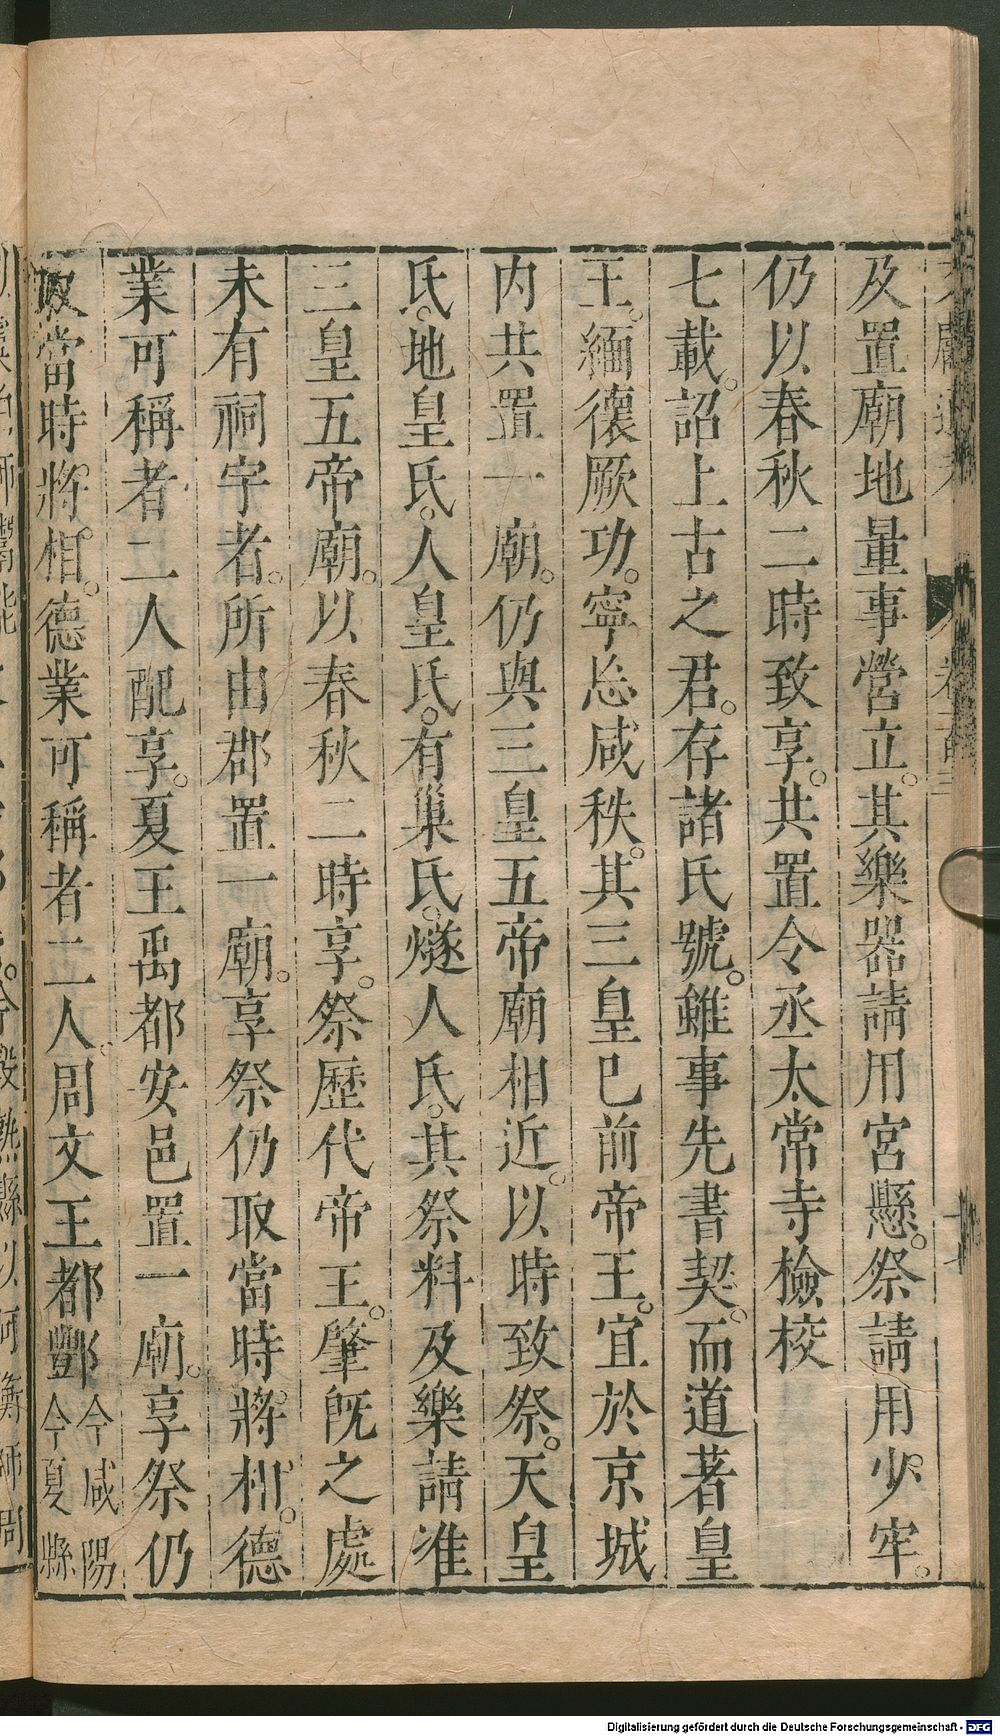 及置廟地量事營立。其樂器請用宮懸。祭請用少牢。
仍以春秋二時致享。共置令丞太常寺檢校
七載。詔上古之君。存諸氏號。雖事先書契。而道著皇
王。緬懷厥功。寧忘咸秩。其三皇已前帝王。宜於京城
內共置一廟。仍與三皇五帝廟相近。以時致祭。天皇
氏。地皇氏。人皇氏。有巢氏。燧人氏。其祭料及樂請准
三皇五帝廟。以春秋二時享。祭歷代帝王。肇旣之處
未有祠宇者。所由郡置一廟。享祭仍取當時將相。德
業可稱者二人配享。夏王禹都安邑置一廟。享祭仍
取當時將相。德業可稱者二人。周文王都酆今咸陽
今夏縣
Digitalisierung gefördert durch die Deutsche Forschungsgemeinschaft - DFG